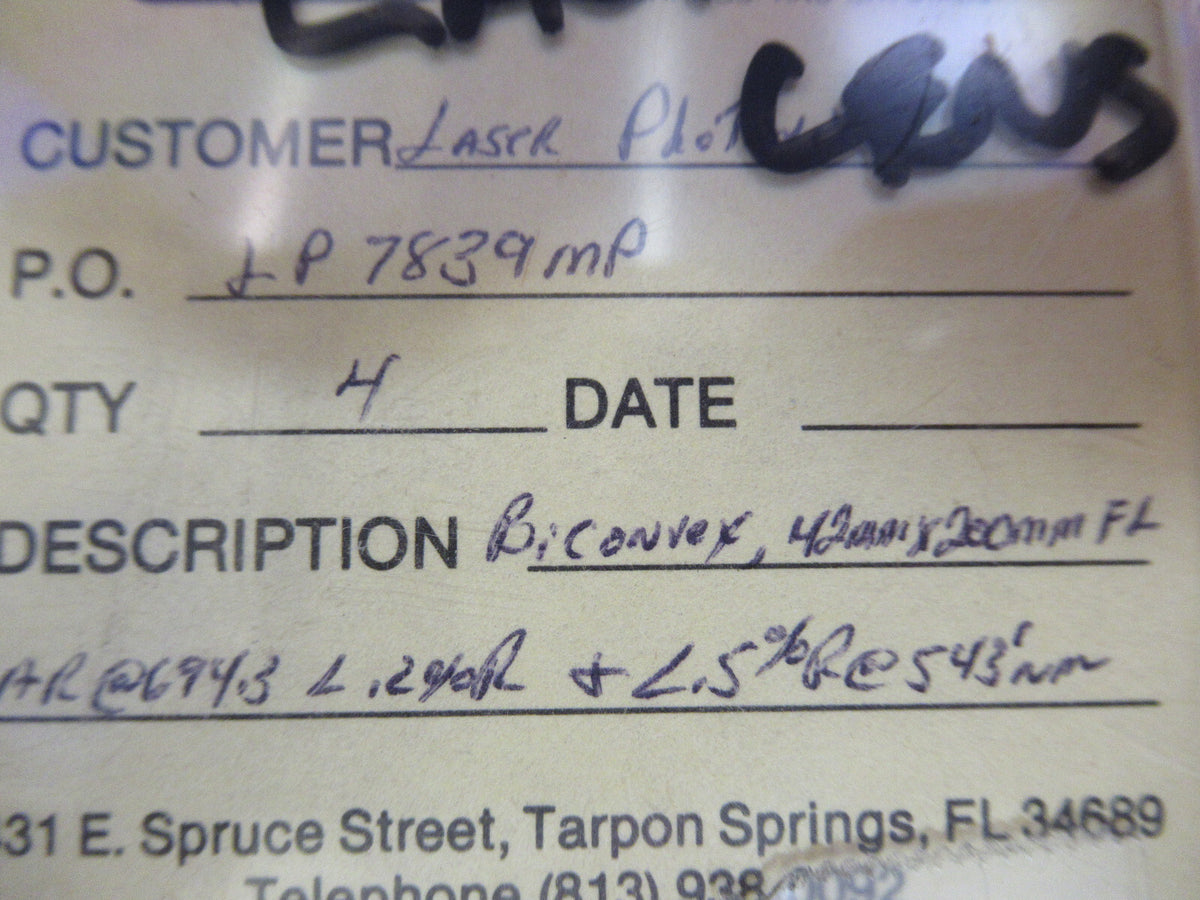 Lens
CUSTOMER Laser
P.O. LP 7839 mP
QTY 4 DATE
DESCRIPTION Biconvex, 42mm x 200mm FL
AR @ 694.3 < .2%R + < .5%R @ 543 nm
31 E. Spruce Street, Tarpon Springs, FL 34689
Telephone (813) 938 0092